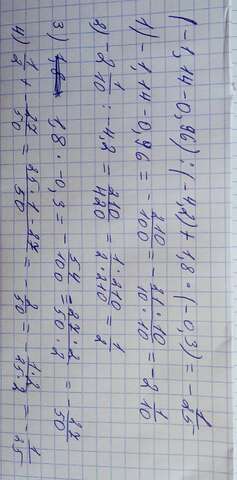 (-1,14-0,96):(-4,2)+1,8·(-0,3)=-1/25
1)-1,14-0,96=-210/100=-21·10/10·10=-2 1/10
2)-2 1/10:-4,2=210/420=1·210/2·210=1/2
3) 1,8·-0,3=-54/100=27·2/50·2=-27/50
4) 1/2+-27/50=25·1-27/50=-2/50=-1·2/25·2=-1/25